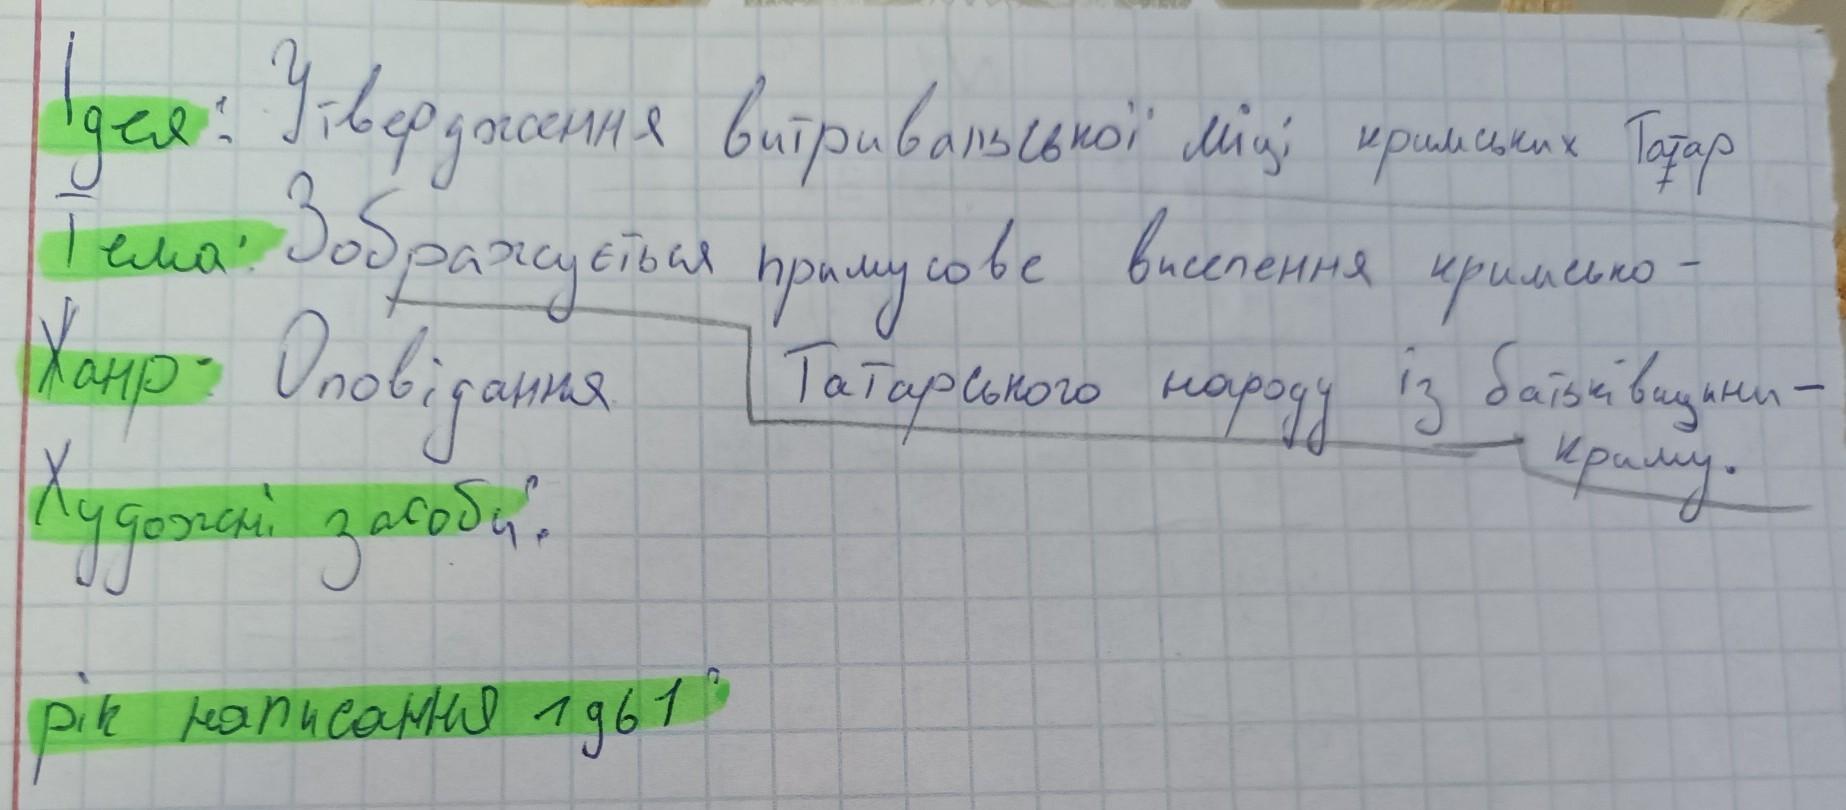 Ідея: Утвердження витривальської міці кримських Татар
Тема: Зображується примусове виселення кримсько-
Татарського народу із батьківщини-
Криму.
Жанр: Оповідання
Художні засоби:
рік написання 1961